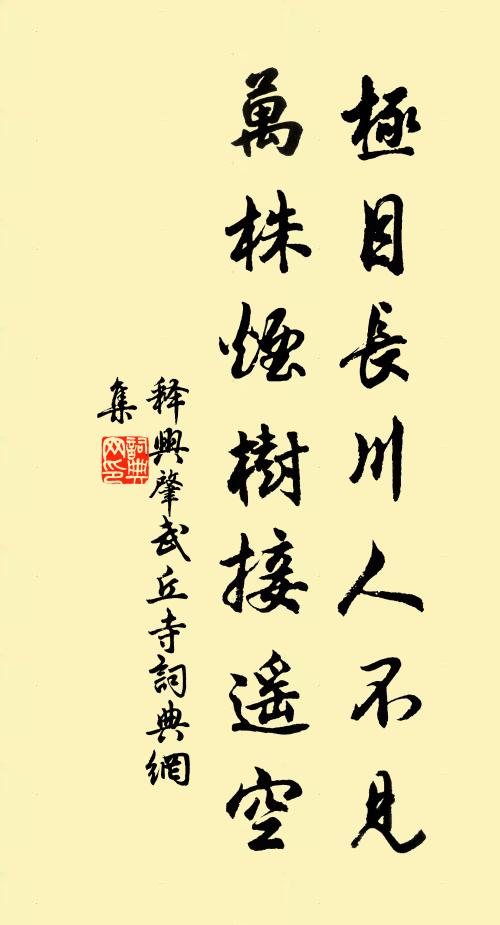 極目長川人不見
萬株煙樹接遥空
释興肇武丘寺詞典網
集
詞典
网印